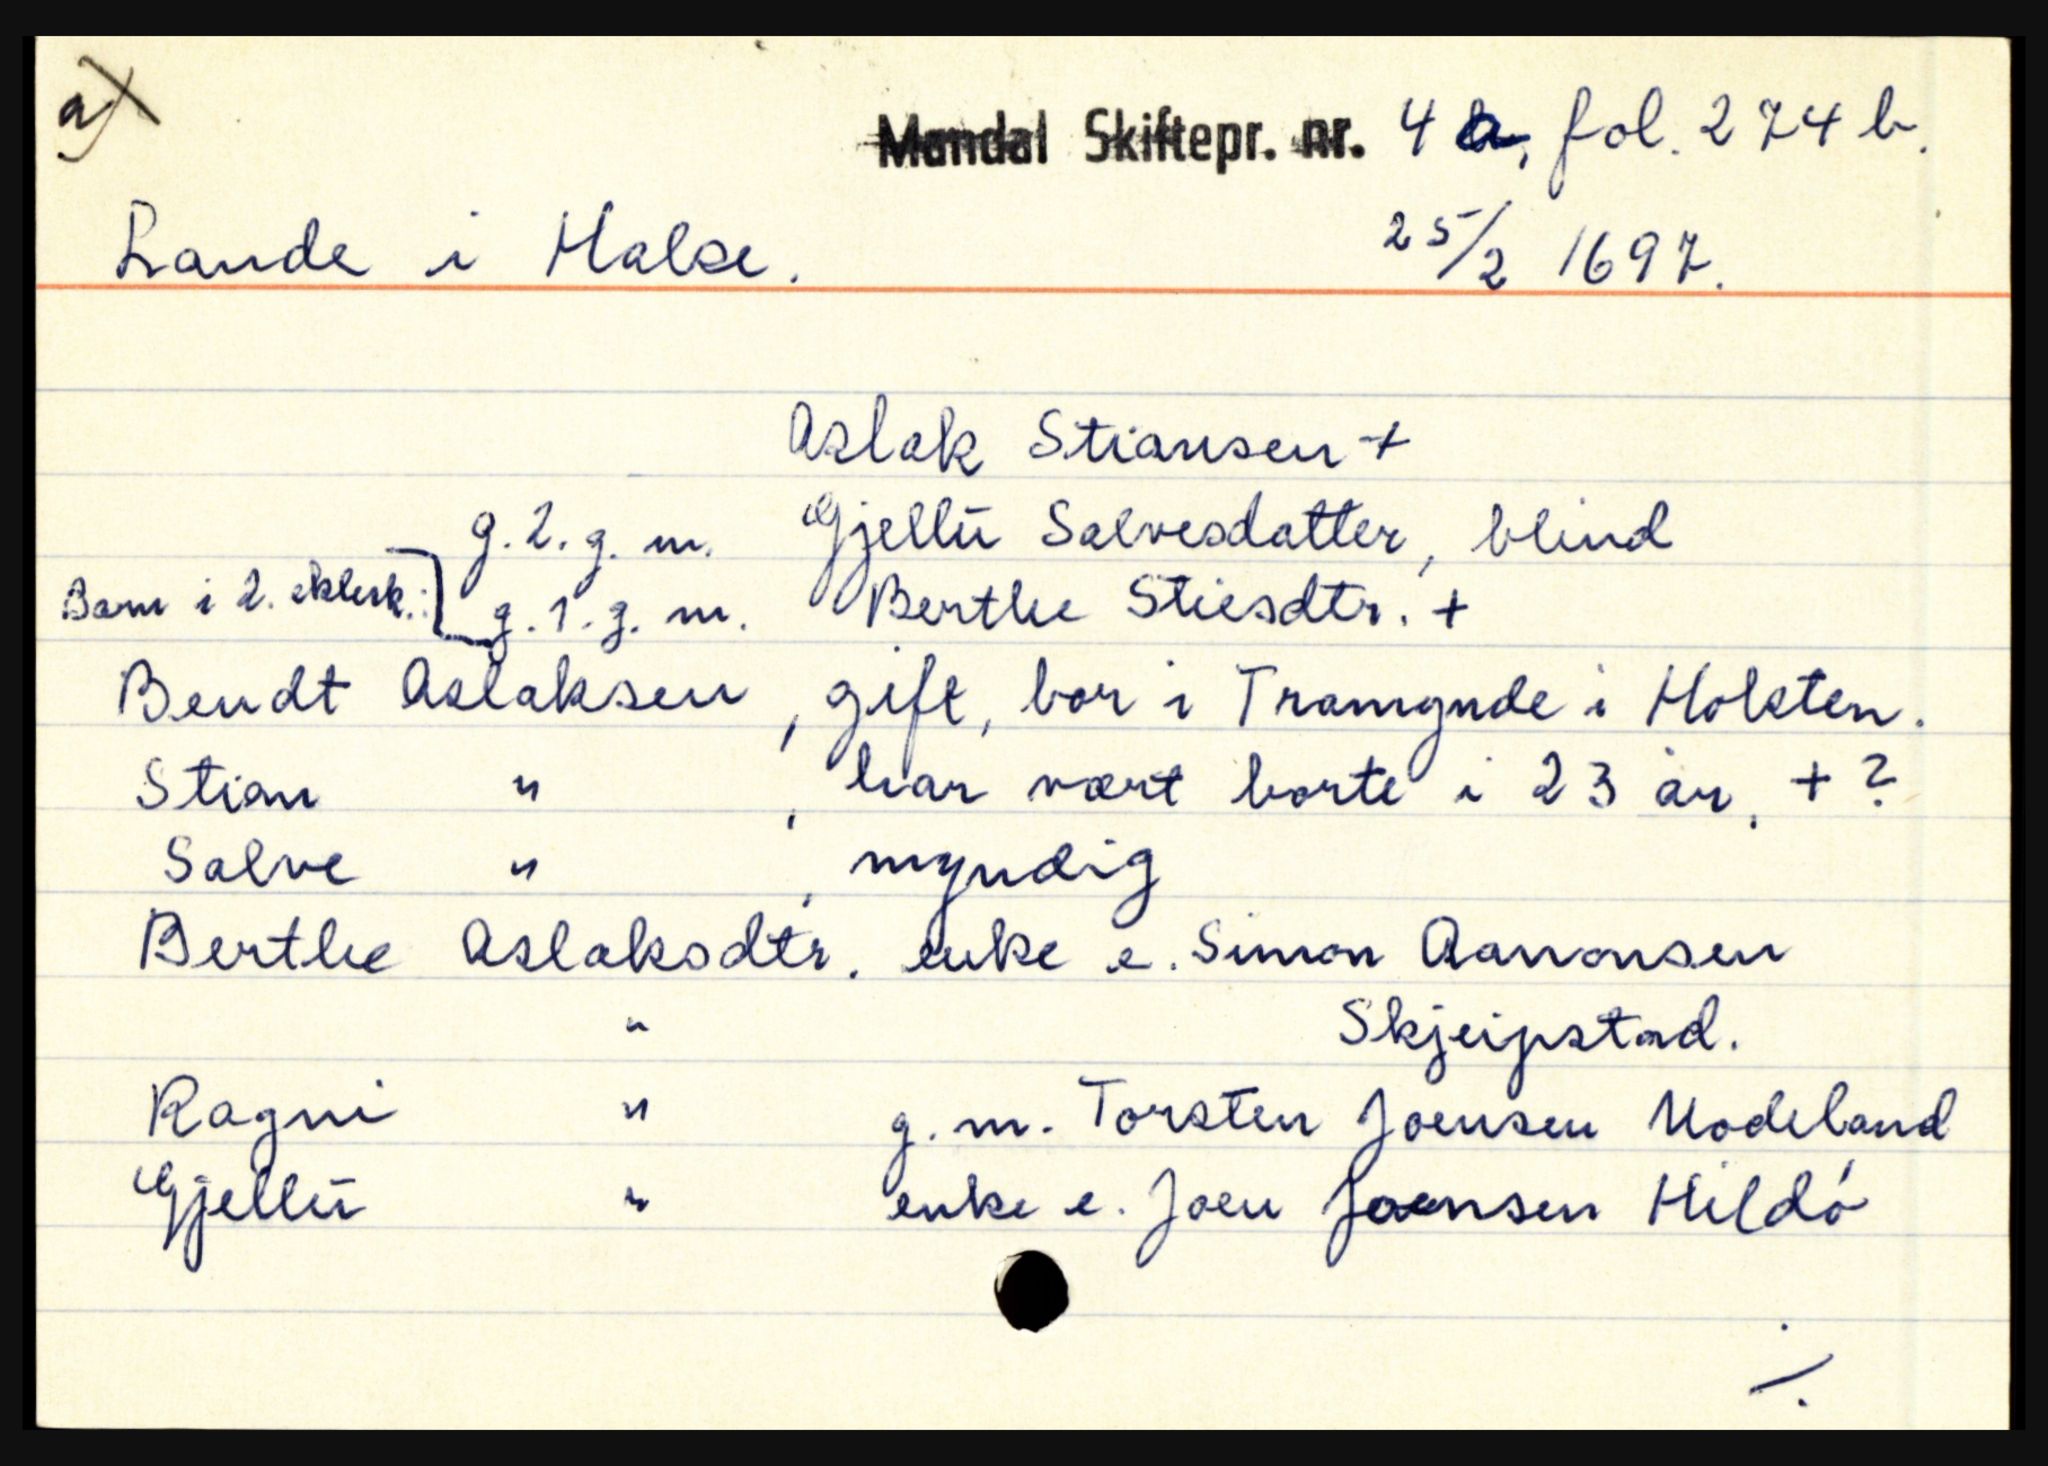 a)
Mandal Skiftepr. nr. 4 a, fol. 274 b.
Lande i Halse. 25/2 1697.
Aslak Stiansen +
g. 2. g. m. Gjellū Salvesdatter, blind
Barn i 2. ektesk.: g. 1. g. m. Berthe Stiesdtr. +
Bendt Aslaksen, gift, bor i Tramynde i Holsten.
Stian " , har vært borte i 23 år. + ?
Salve " , myndig
Berthe Aslaksdtr. enke e. Simon Aanonsen
" Skjeipstad.
Ragni " g. m. Torsten Joensen Nodeland
Gjellū " enke e. Joen Joensen Hildó
./.